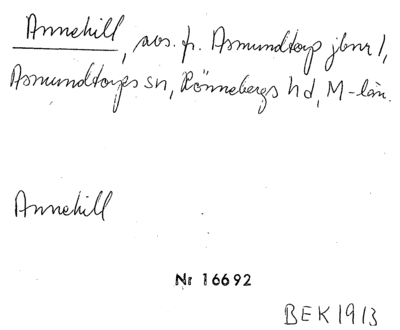 Annehill, avs. fr. Asmundtorp jbnr 1,
Asmundtorps sn, Rönnebergs hd, M-län.
Annehill
Nr 16692
BEK 1913